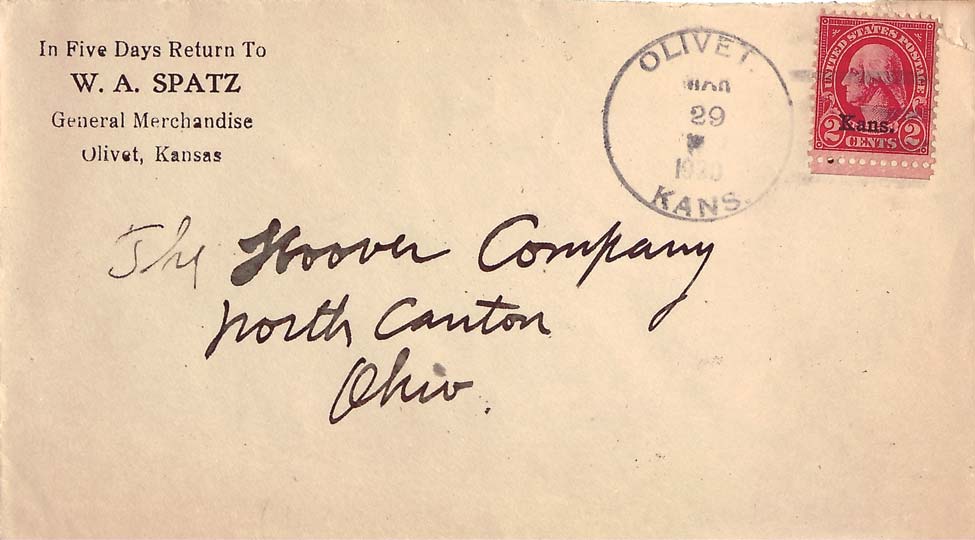 In Five Days Return To
W. A. SPATZ
General Merchandise
Olivet, Kansas
OLIVET.
MAR
29
1930
KANS.
UNITED STATES POSTAGE
Kans.
2 CENTS 2
The Hoover Company
North Canton
Ohio.